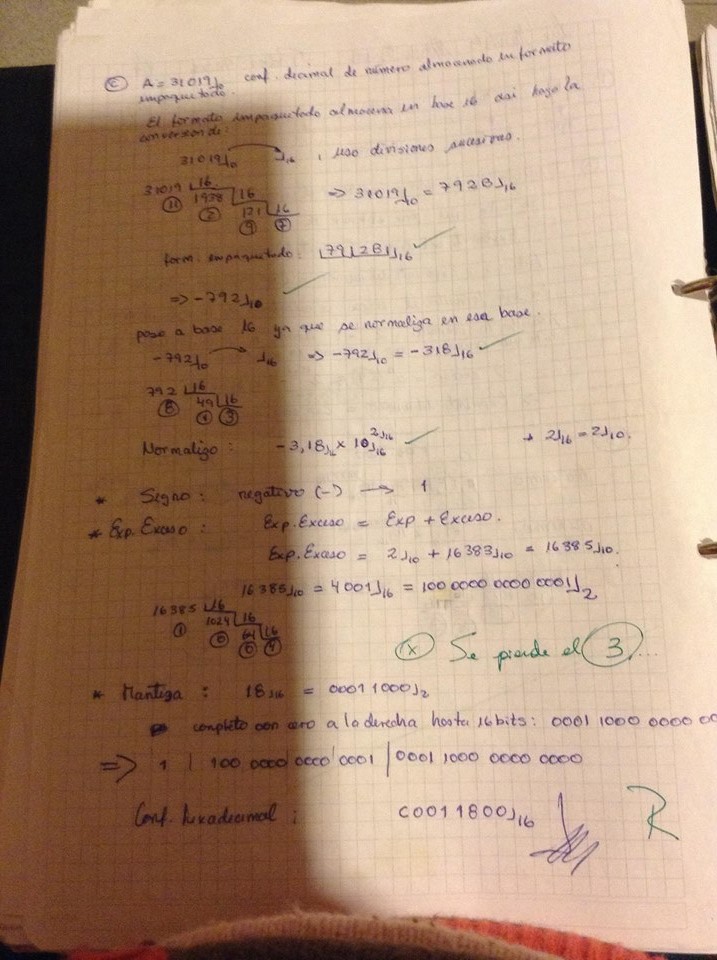 © A = 31019⌋10 conf. decimal de número almacenado en formato
empaquetado.
El formato empaquetado almacena en base 16 asi hago la
conversion de:
31019⌋10 ⌋16 , uso divisiones sucesivas.
31019 16
11 1938 16
2 121 16
9 7
=> 31019⌋10 = 792B⌋16
form. empaquetado: 79 2B⌋16 ✓
=> -792⌋10 ✓
paso a base 16 ya que se normaliza en esa base.
-792⌋10 ⌋16 => -792⌋10 = -318⌋16 ✓
792 16
8 49 16
1 3
Normalizo: -3,18⌋16 x 10⌋16 2⌋16 ✓ → 2⌋16 = 2⌋10.
* Signo: negativo (-) → 1
* Exp. Exceso: Exp. Exceso = Exp + Exceso.
Exp. Exceso = 2⌋10 + 16383⌋10 = 16385⌋10.
16385⌋10 = 4001⌋16 = 100 0000 0000 0001⌋2
16385 16
1 1024 16
0 64 16
0 4
(x) Se pierde el 3,...
* Mantiza: 18⌋16 = 0001 1000⌋2
completo con cero a la derecha hasta 16 bits: 0001 1000 0000 00
=> 1 | 100 0000 0000 0001 | 0001 1000 0000 0000
Conf. hexadecimal: C0011800⌋16
R